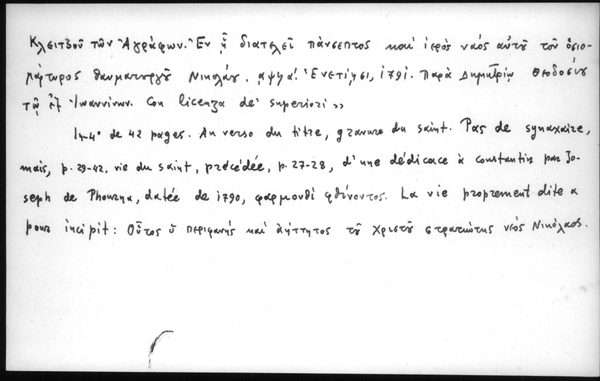 Κλειτζοῦ τῶν Ἀγράφων. Ἐν ᾗ διατελεῖ πάνσεπτος καὶ ἱερὸς ναός αὐτοῦ τοῦ ὁσιο-
μάρτυρος θαυματουργοῦ Νικολάου. αψϟα! Ἐνετίησι, 1791. Παρὰ Δημητρίῳ Θεοδοσίου
τῷ ἐξ Ἰωαννίνων. Con licenza de' superiori »
In-4° de 42 pages. Au verso du titre, gravure du saint. Pas de synaxaire,
mais, p. 29-42, vie du saint, précédée, p. 27-28, d'une dédicace à Constantin par Jo-
seph de Phourna, datée de 1790, φαρμουθὶ φθίνοντος. La vie proprement dite a
pour incipit: Οὗτος ὁ περιφανὴς καὶ ἀήττητος τοῦ Χριστοῦ στρατιώτης νέος Νικόλαος.